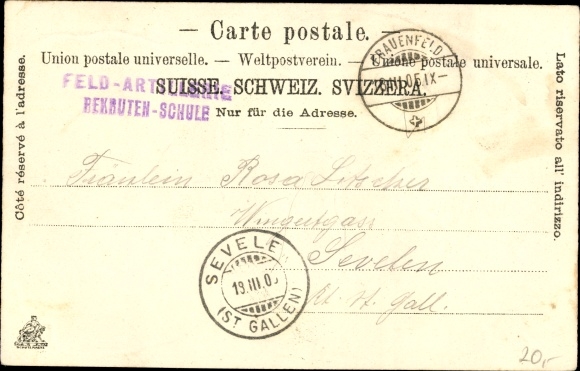 — Carte postale. —
Union postale universelle. — Weltpostverein. — Unione postale universale.
SUISSE. SCHWEIZ. SVIZZERA.
Nur für die Adresse.
Côté réservé à l'adresse.
Lato riservato all' indirizzo.
FELD-ARTILLERIE
REKRUTEN-SCHULE
FRAUENFELD
III.05.IX—
Fräulein Rosa Litscher
Sevelen
Kt. St. Gall.
SEVELEN
19.III.05
(ST GALLEN)
20,-